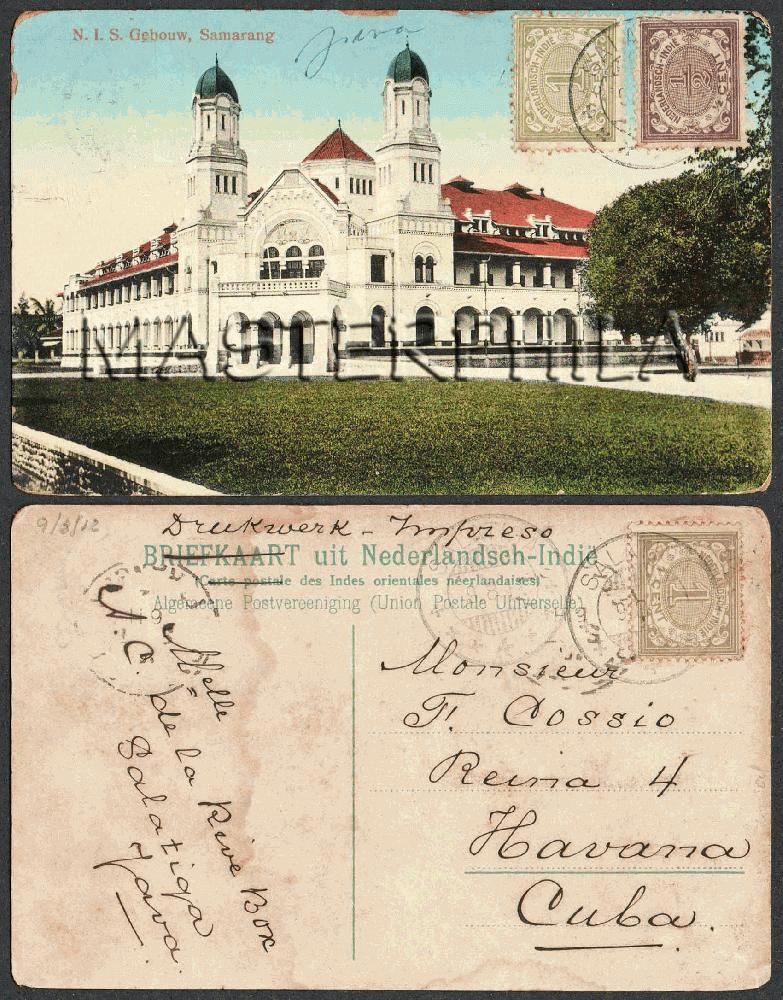 N. I. S. Gebouw, Samarang
Java
NEDERLANDSCH-INDIË
1
NEDERLANDSCH-INDIË
½
CENT
MASTERPHILA
9/3/12
Drukwerk - Impreso
BRIEFKAART uit Nederlandsch-Indië
(Carte postale des Indes orientales néerlandaises)
Algemeene Postvereeniging (Union Postale Universelle)
NEDERLANDSCH-INDIË
1
CENT
SAL
Monsieur
F. Cossio
Reina 4
Havana
Cuba.
Melle
A. C. de la Rive Box
Salatiga
Java.